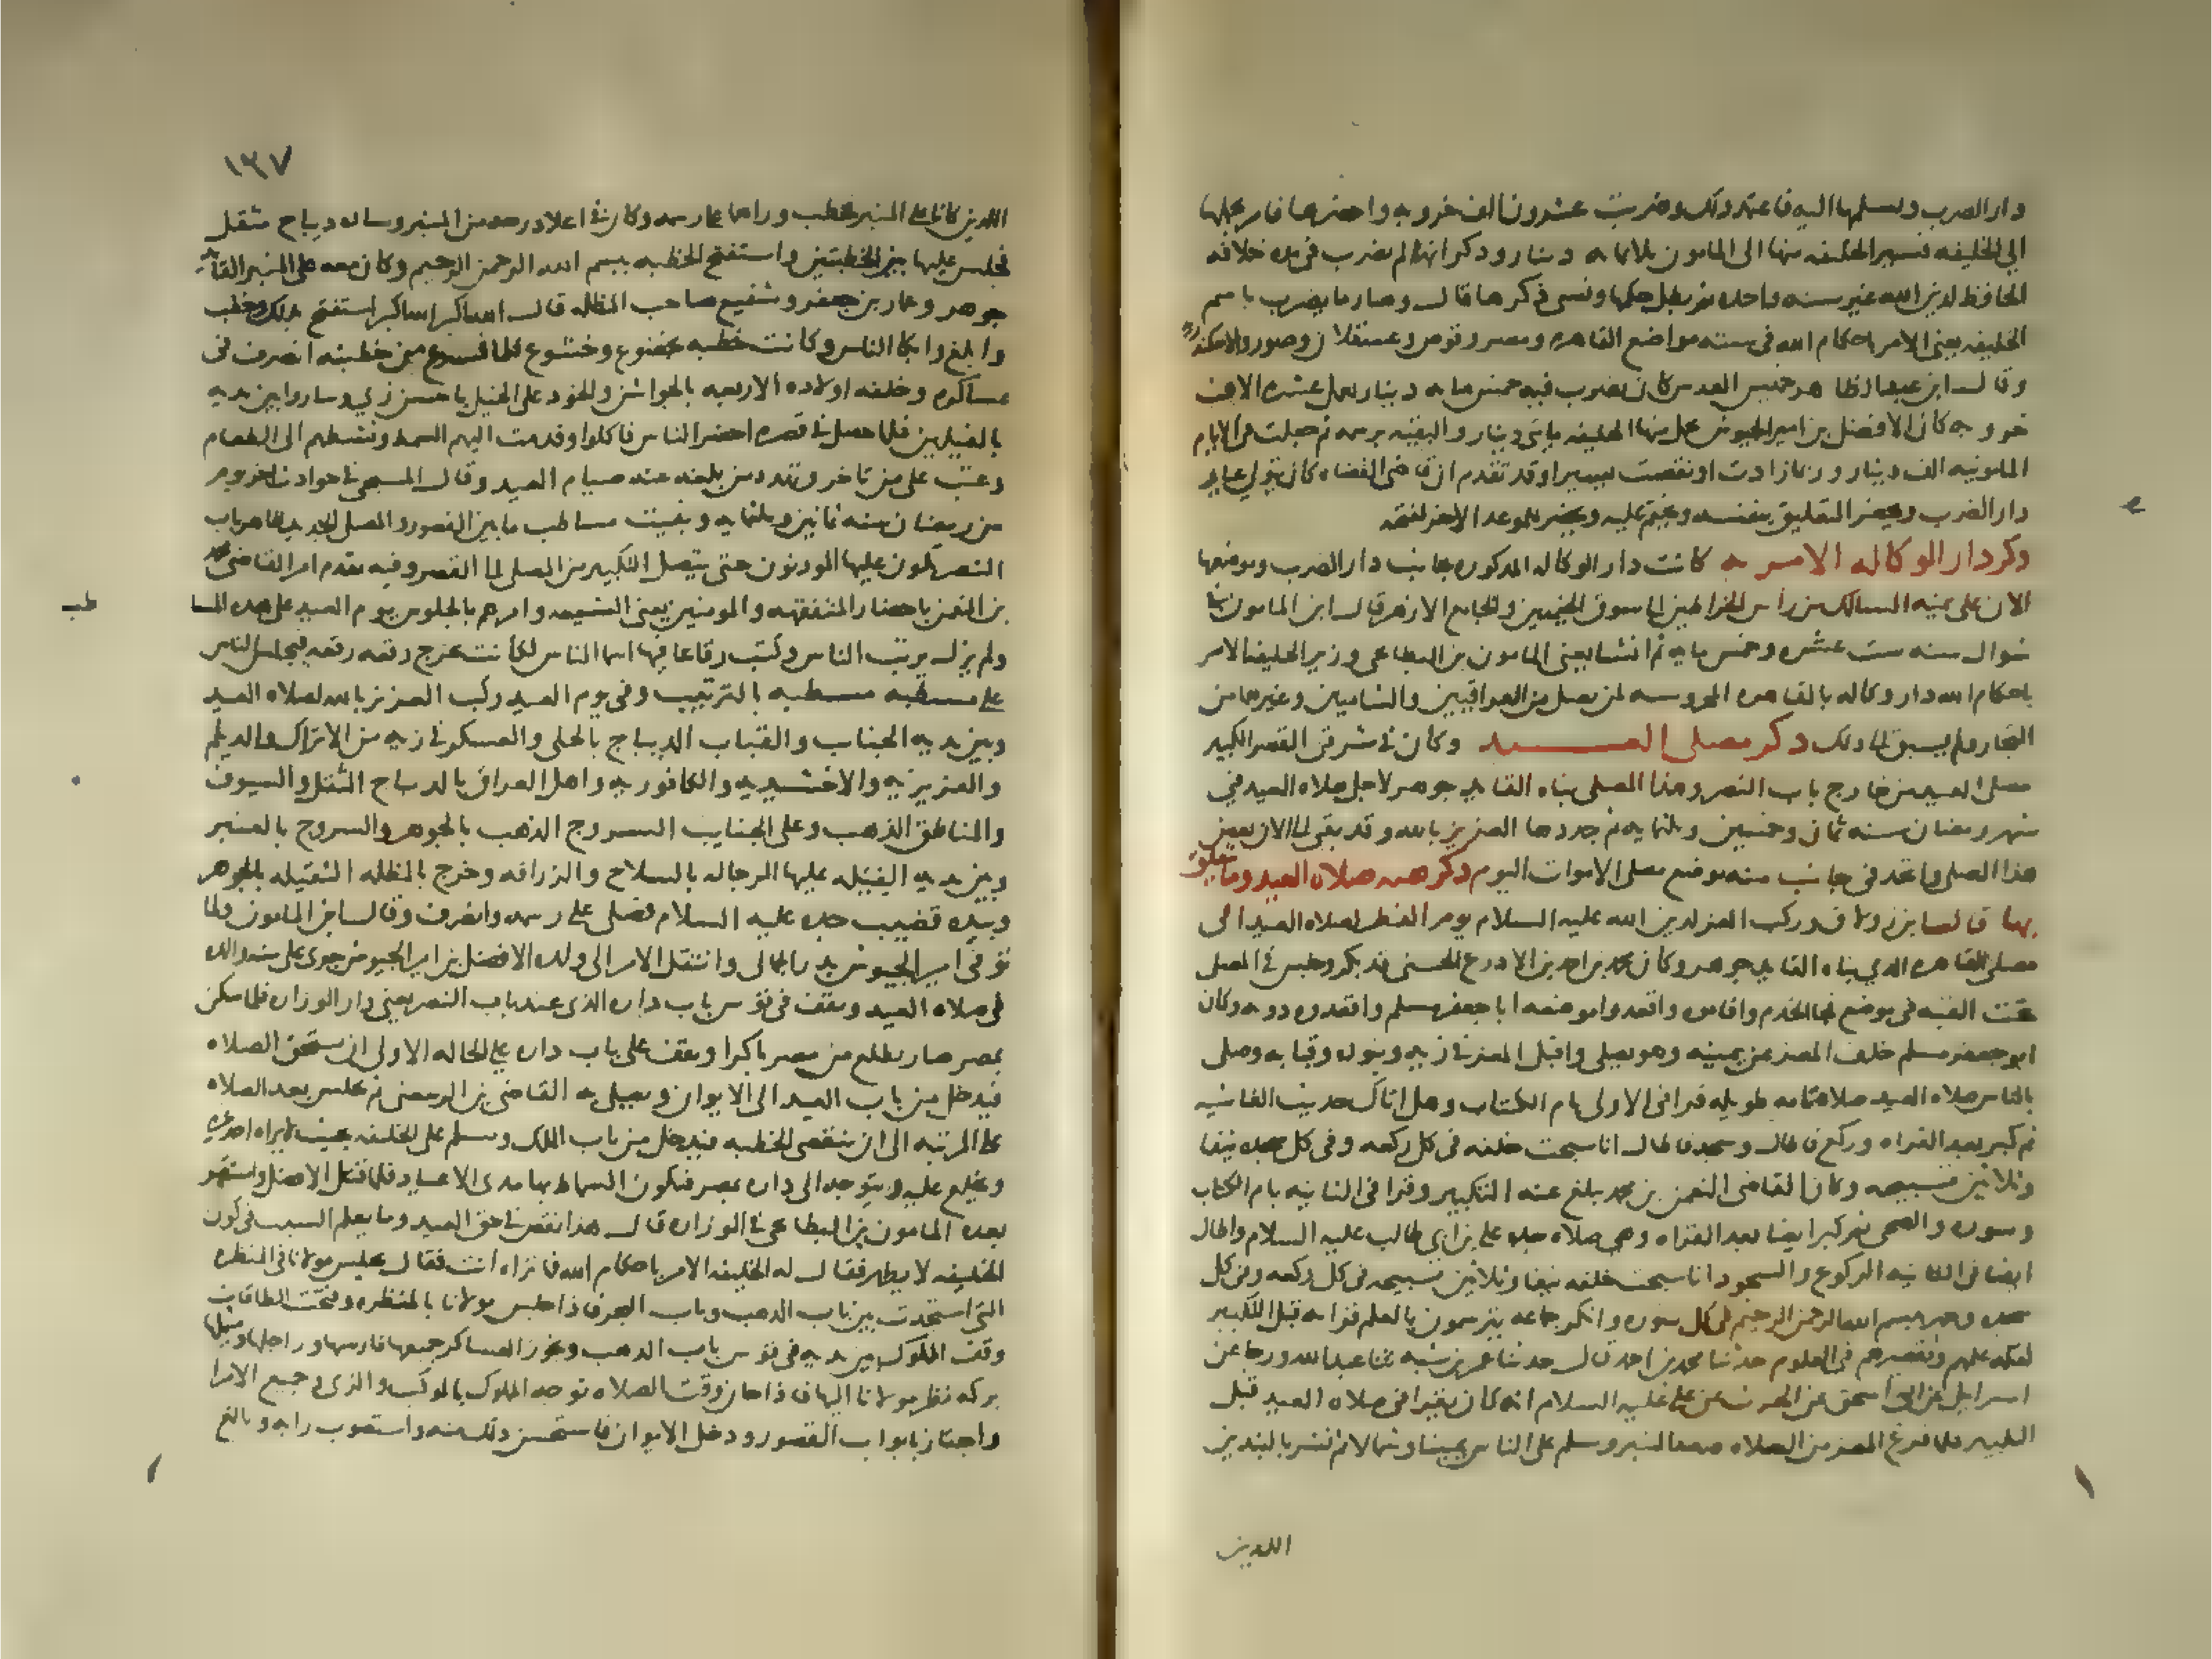 دار الضرب ويسلمها اليه فاعتمد ذلك وضربت عشرون الف خروبه واحضرها فامر بحملها
الى الخليفه فسير الخليفه منها الى المامون ثلاثمايه دينار وذكر انه لم يضرب في مده خلافه
الحافظ لدين الله غير سنه واحده ثم بطل حكمها ونسى ذكرها قال وصار ما يضرب باسم
الخليفه يعنى الامر باحكام الله فى سته مواضع القاهره ومصر وقوص وعسقلان وصور والاسكندريه
وقال ابن عبد الظاهر خميس العدس كان يضرب فيه خمس مايه دينار تعمل عشره الاف
خروبه كان الافضل بن امير الجيوش يحمل منها للخليفه مايتى دينار والبقيه برسمه ثم جعلت فى الايام
المامونيه الف دينار وربما زادت او نقصت يسيرا وقد تقدم ان قاضى القضاه كان يتولى عيار
دار الضرب ويحضر التغليق بنفسه ويختم عليه ويحضر للموعد الاخر لفتحه
ذكر دار الوكاله الامريه كانت دار الوكاله المذكوره بجانب دار الضرب وموضعها
الان على يمنه السالك من راس الخراطين الى سوق الخيميين والجامع الازهر قال ابن المامون فى
شوال سنه ست عشره وخمس مايه ثم انشا يعنى المامون بن البطايحى وزير الخليفه الامر
باحكام الله دار وكاله بالقاهره المحروسه لمن يصل من العراقيين والشاميين وغيرهما من
التجار ولم يسبق الى ذلك ذكر مصلى العيد وكان فى شرقى القصر الكبير
مصلى العيد من خارج باب النصر وهذا المصلى بناه القايد جوهر لاجل صلاه العيد فى
شهر رمضان سنه ثمان وخمسين وثلثمايه ثم جددها العزيز بالله وقد بقى الى الان بعض
هذا المصلى واتخذ فى جانب منه موضع مصلى الاموات اليوم ذكر هيئه صلاه العيد وما يتعلق
بها قال ابن زولاق وركب المعز لدين الله عليه السلام يوم الفطر لصلاه العيد الى
مصلى القاهره الذى بناه القايد جوهر وكان محمد بن احمد بن الادرع الحسنى قد بكر وجلس فى المصلى
تحت القبه فى موضع فجا الخدم واقاموه واقعدوا موضعه ابا جعفر مسلم واقعدوه دونه وكان
ابو جعفر مسلم خلف المعز عن يمينه وهو يصلى واقبل المعز فى زيه وبنوده وقبابه وصلى
بالناس صلاه العيد صلاه تامه طويله قرا فى الاولى بام الكتاب وهل اتاك حديث الغاشيه
ثم كبر بعد القراه وركع فاطال وسجد فاطال انا سبحت خلفه فى كل ركعه وفى كل سجده نيفا
وثلاثين تسبيحه وكان القاضى النعمن بن محمد يبلغ عنه التكبير وقرا فى الثانيه بام الكتاب
وسوره والضحى ثم كبر ايضا بعد القراه وهى صلاه جده على بن ابى طالب عليه السلام واطال
ايضا فى الثانيه الركوع والسجود انا سبحت خلفه نيفا وثلاثين تسبيحه فى كل ركعه وفى كل
سجده وجهر ببسم الله الرحمن الرحيم فى كل سوره وانكر جماعه يترسمون بالعلم قراته قبل التكبير
لقله علمهم وتقصيرهم فى العلوم حدثنا محمد بن احمد قال حدثنا عمر بن شبه ثنا عبد الله ورجا عن
اسرايل عن ابى اسحق عن الحرث عن على عليه السلام انه كان يقرا فى صلاه العيد قبل
التكبير فلما فرغ المعز من الصلاه صعد المنبر وسلم على الناس يمينا وشمالا ثم نشر بالبندين
اللذين
١٣٧
اللذين كانا على المنبر فخطب وراهما على رسمه وكان فى اعلا درجه من المنبر وساده ديباج مثقل
فجلس عليها بين الخطبتين واستفتح الخطبه ببسم الله الرحمن الرحيم وكان معه على المنبر القايد
جوهر وعمار بن جعفر وشفيع صاحب المظله قال الله اكبر الله اكبر استفتح بذلك وخطب
وابلغ وابكا الناس وكانت خطبه بخضوع وخشوع فلما فرغ من خطبته انصرف فى
عساكره وخلفه اولاده الاربعه بالجواشن والخود على الخيل باحسن زى وساروا بين يديه
بالفيلين فلما حصل فى قصره احضر الناس فاكلوا وقدمت اليهم السمط ونشطهم الى الطعام
وعتب على من تاخر وتهدد من بلغه عنه صيام العيد وقال المسبحى فى حوادث اخر يوم
من رمضان سنه ثمانين وثلثمايه وبنيت مساطب ما بين القصور والمصلى الجديد ظاهر باب
النصر تكون عليها الموذنون حتى يتصل التكبير من المصلى الى القصر وفيه تقدم امر القاضى محمد
بن النعمن باحضار المتفقهه والمومنين يعنى الشيعه وامرهم بالجلوس يوم العيد على هذه المسا
طب
ولم يزل يرتب الناس وكتب رقاعا فيها اسما الناس فكانت تخرج رقعه رقعه فيجلس الناس
على مسطبه مسطبه بالترتيب وفى يوم العيد ركب العزيز بالله لصلاه العيد
وبين يديه الجنايب والقباب الديباج بالحلى والعسكر فى زيه من الاتراك والديلم
والعزيزيه والاخشيديه والكافوريه واهل العراق بالديباج المثقل والسيوف
والمناطق الذهب وعلى الجنايب السروج الذهب بالجوهر والسروج بالعنبر
وبين يديه الفيله عليها الرجاله بالسلاح والزراقه وخرج بالمظله الثقيله بالجوهر
وبيده قضيب جده عليه السلام فصلى على رسمه وانصرف وقال ابن المامون ولما
توفى امير الجيوش بدر الجمالى وانتقل الامر الى ولده الافضل بن امير الجيوش جرى على سنه والده
فى صلاه العيد ويقف فى قوس باب داره الذى عند باب النصر يعنى دار الوزاره فلما سكن
بمصر صار يطلع من مصر باكرا ويقف على باب داره على الحاله الاولى الى ان يستحق الصلاه
فيدخل من باب العيد الى الايوان ويصلى به القاضى بن الرسعنى ثم يجلس بعد الصلاه
على المرتبه الى ان تنقضى الخطبه فيدخل من باب الملك ويسلم على الخليفه بحيث لا يراه احد غيره
ويخلع عليه ويتوجه الى داره بمصر فيكون السماط بها مدى الاعياد فلما قتل الافضل واستقر
بعده المامون بن البطايحى فى الوزاره قال هذا نقص فى حق العيد وما يعلم السبب فى كون
الخليفه لا يظهر فقال له الخليفه الامر باحكام الله فما تراه انت فقال يجلس مولانا فى المنظره
التى استجدت بين باب الذهب وباب البحر فاذا جلس مولانا بالمنظره وفتحت الطاقات
وقف المملوك بين يديه فى قوس باب الذهب وتجوز العساكر جميعها فارسها وراجلها وتشملها
بركه نظر مولانا اليها فاذا حان وقت الصلاه توجه المملوك بالموكب والزى وجميع الامرا
واجتاز بابواب القصور ودخل الايوان فاستحسن ذلك منه واستصوب رايه وبالغ